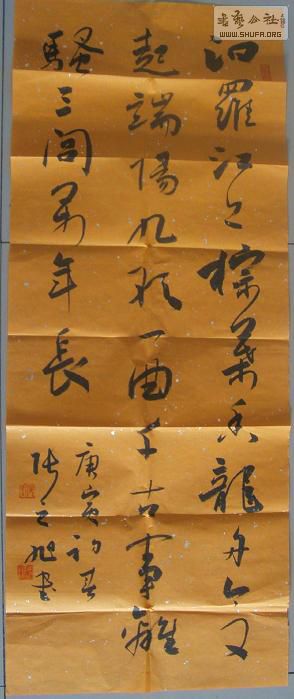 書藝公社
WWW.SHUFA.ORG
汨羅江上棕葉香龍舟今又
起端陽九歌一曲千古事離
騷三閭萬年長
庚寅初春
之旭書